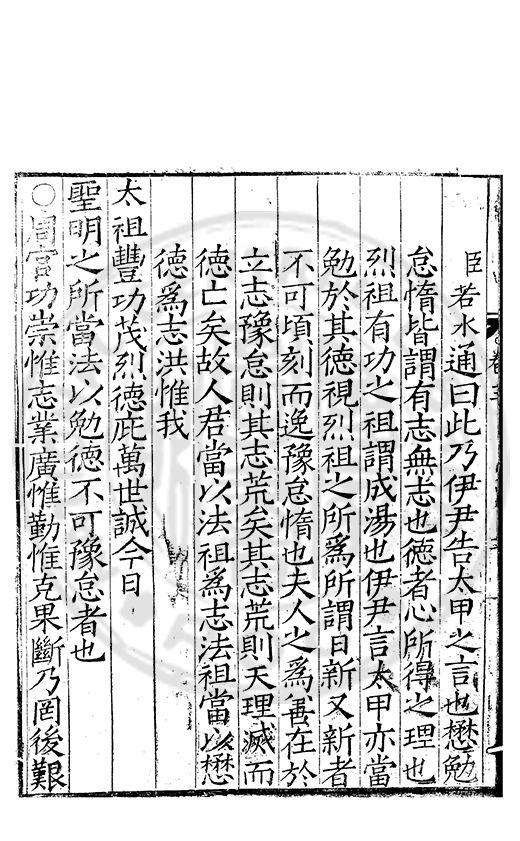 臣若水通曰此乃伊尹告太甲之言也懋勉
怠惰皆謂有志無志也德者心所得之理也
烈祖有功之祖謂成湯也伊尹言太甲亦當
勉於其德視烈祖之所爲所謂日新又新者
不可頃刻而逸豫怠惰也夫人之爲善在於
立志豫怠則其志荒矣其志荒則天理滅而
德亡矣故人君當以法祖爲志法祖當以懋
德爲志洪惟我
太祖豐功茂烈德庇萬世誠今日
聖明之所當法以勉德不可豫怠者也
○周官功崇惟志業廣惟勤惟克果斷乃罔後艱